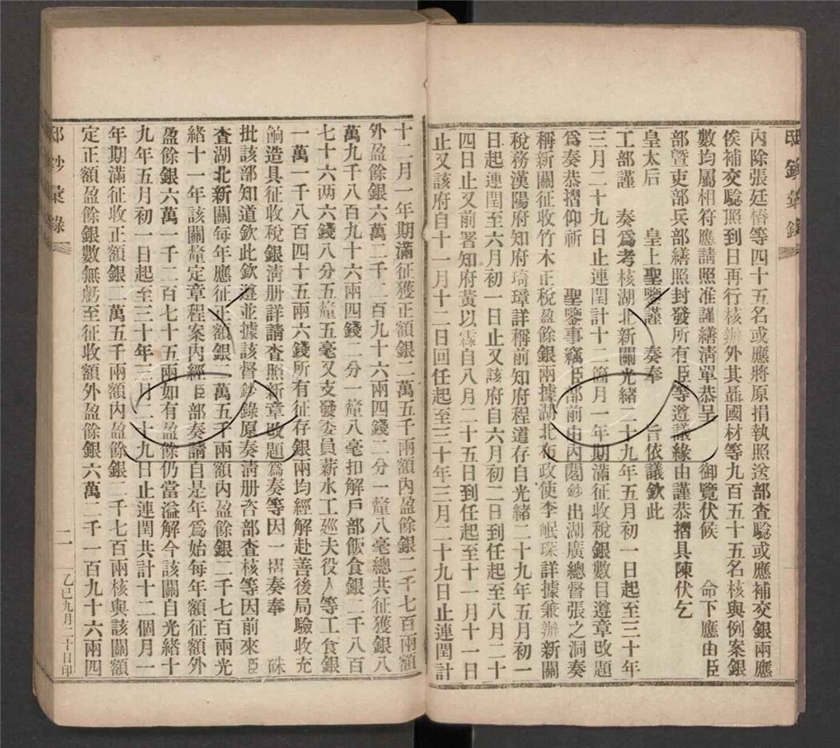 邸鈔彙錄
內除張廷橁等四十五名或應將原捐執照送部查驗或應補交銀兩應
俟補交驗照到日再行核辦外其聶國材等九百五十五名核與例案銀
數均屬相符應請照准謹繕清單恭呈 御覽伏候 命下應由臣
部暨吏部兵部繕照封發所有臣等遵議緣由謹恭摺具陳伏乞
皇太后 皇上聖鑒謹 奏奉 旨依議欽此
工部謹 奏爲考核湖北新關光緒二十九年五月初一日起至三十年
三月二十九日止連閏計十二箇月一年期滿征收稅銀數目遵章改題
爲奏恭摺仰祈 聖鑒事竊臣部前由內閣鈔出湖廣總督張之洞奏
稱新關征收竹木正稅盈餘銀兩據湖北布政使李岷琛詳據兼辦新關
稅務漢陽府知府琦璋詳稱前知府程道存自光緒二十九年五月初一
日起連閏至六月初一日止又該府自六月初二日到任起至八月二十
四日止又前署知府黃以霖自八月二十五日到任起至十一月十一日
止又該府自十一月十二日回任起至三十年三月二十九日止連閏計
十二月一年期滿征獲正額銀二萬五千兩額內盈餘銀二千七百兩額
外盈餘銀六萬二千一百九十六兩四錢二分一釐八毫總共征獲銀八
萬九千八百九十六兩四錢二分一釐八毫扣解戶部飯食銀二千八百
七十六兩六錢八分五釐五毫又支發委員薪水工巡夫役人等工食銀
一萬一千八百四十五兩六錢所有征存銀兩均經解赴善後局驗收充
餉造具征收稅銀清册詳請查照新章改題爲奏等因一摺奏奉 硃
批該部知道欽此欽遵並據該督鈔錄原奏清册咨部查核等因前來臣
查湖北新關每年應征正額銀二萬五千兩額內盈餘銀二千七百兩光
緒十一年該關釐定章程案內經臣部奏請自是年爲始每年額征額外
盈餘銀六萬一千二百七十五兩如有盈餘仍當溢解今該關自光緒十
九年五月初一日起至三十年三月二十九日止連閏共計十二個月一
年期滿征收正額銀二萬五千兩額內盈餘銀二千七百兩核與該關額
定正額盈餘銀數無虧至征收額外盈餘銀六萬二千一百九十六兩四
邸鈔彙錄
一
乙巳九月二十日印